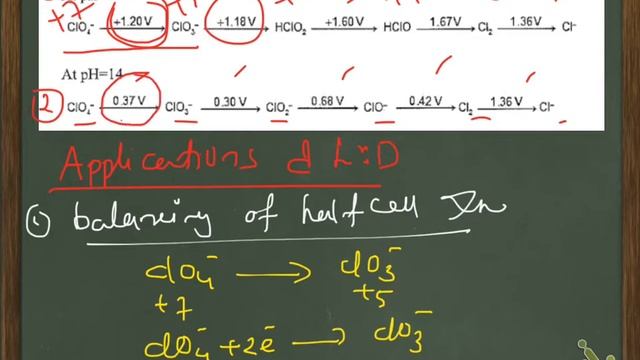 +7
ClO₄⁻ +1.20 V ClO₃⁻ +1.18 V HClO₂ +1.60 V HClO 1.67V Cl₂ 1.36V Cl⁻
At pH=14
2 ClO₄⁻ 0.37 V ClO₃⁻ 0.30 V ClO₂⁻ 0.68 V ClO⁻ 0.42 V Cl₂ 1.36 V Cl⁻
Applications of L:D
(1) balancing of half cell rxn
ClO₄⁻ → ClO₃⁻
+7 +5
ClO₄⁻ + 2e⁻ → ClO₃⁻